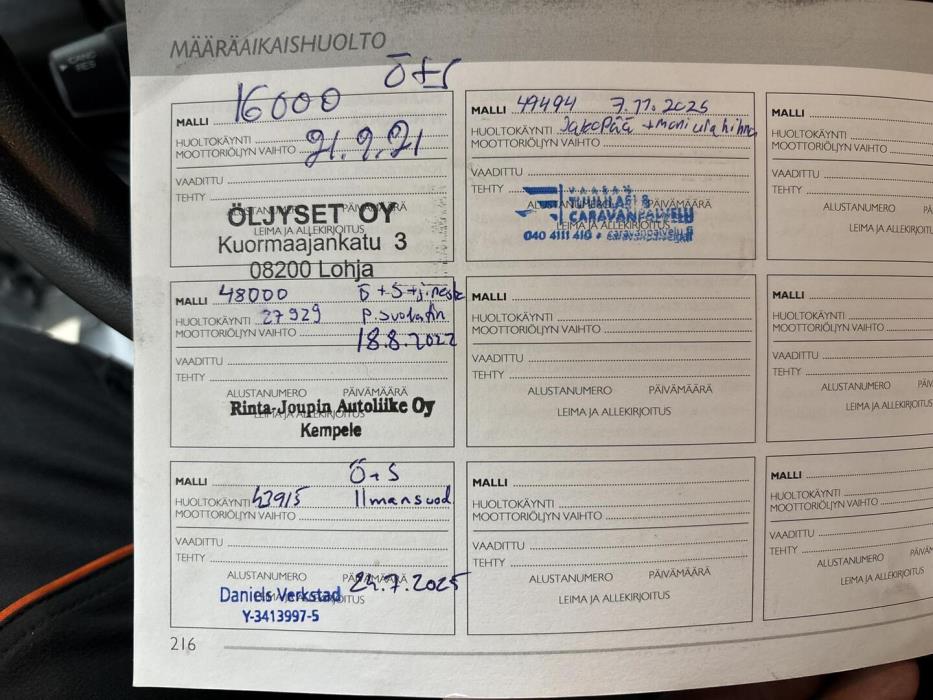 CANC
YES
MÄÄRÄAIKAISHUOLTO
Ö+S
16000
MALLI
HUOLTOKÄYNTI
MOOTTORIÖLJYN VAIHTO 21.9.21
VAADITTU
TEHTY
ALUSTANUMERO PÄIVÄMÄÄRÄ
LEIMA JA ALLEKIRJOITUS
ÖLJYSET OY
Kuormaajankatu 3
08200 Lohja
MALLI 48000 Ö+S+j.neste
HUOLTOKÄYNTI 27929 p.suodatin
MOOTTORIÖLJYN VAIHTO 18.8.2022
VAADITTU
TEHTY
ALUSTANUMERO PÄIVÄMÄÄRÄ
LEIMA JA ALLEKIRJOITUS
Rinta-Joupin Autoliike Oy
Kempele
Ö+S
MALLI
HUOLTOKÄYNTI 43915 Ilmansuod
MOOTTORIÖLJYN VAIHTO
VAADITTU
TEHTY
ALUSTANUMERO PÄIVÄMÄÄRÄ
24.7.2025
LEIMA JA ALLEKIRJOITUS
Daniels Verkstad
Y-3413997-5
MALLI 49494 7.11.2025
HUOLTOKÄYNTI Jakopää + moniurahihna
MOOTTORIÖLJYN VAIHTO
VAADITTU
TEHTY
ALUSTANUMERO PÄIVÄMÄÄRÄ
LEIMA JA ALLEKIRJOITUS
VAASAN
CARAVANPALVELU
040 4111 410 • caravanpalvelu.fi
MALLI
HUOLTOKÄYNTI
MOOTTORIÖLJYN VAIHTO
VAADITTU
TEHTY
ALUSTANUMERO PÄIVÄMÄÄRÄ
LEIMA JA ALLEKIRJOITUS
MALLI
HUOLTOKÄYNTI
MOOTTORIÖLJYN VAIHTO
VAADITTU
TEHTY
ALUSTANUMERO PÄIVÄMÄÄRÄ
LEIMA JA ALLEKIRJOITUS
MALLI
HUOLTOKÄYNTI
MOOTTORIÖLJYN VAIHTO
VAADITTU
TEHTY
ALUSTANUMERO PÄ
LEIMA JA ALLEKI
MALLI
HUOLTOKÄYNTI
MOOTTORIÖLJYN VAIHTO
VAADITTU
TEHTY
ALUSTANUMERO PÄIV
LEIMA JA ALLEKIRJO
MALLI
HUOLTOKÄYNTI
MOOTTORIÖLJYN VAIHTO
VAADITTU
TEHTY
ALUSTANUMERO PÄIVÄM
LEIMA JA ALLEKIRJOIT
216